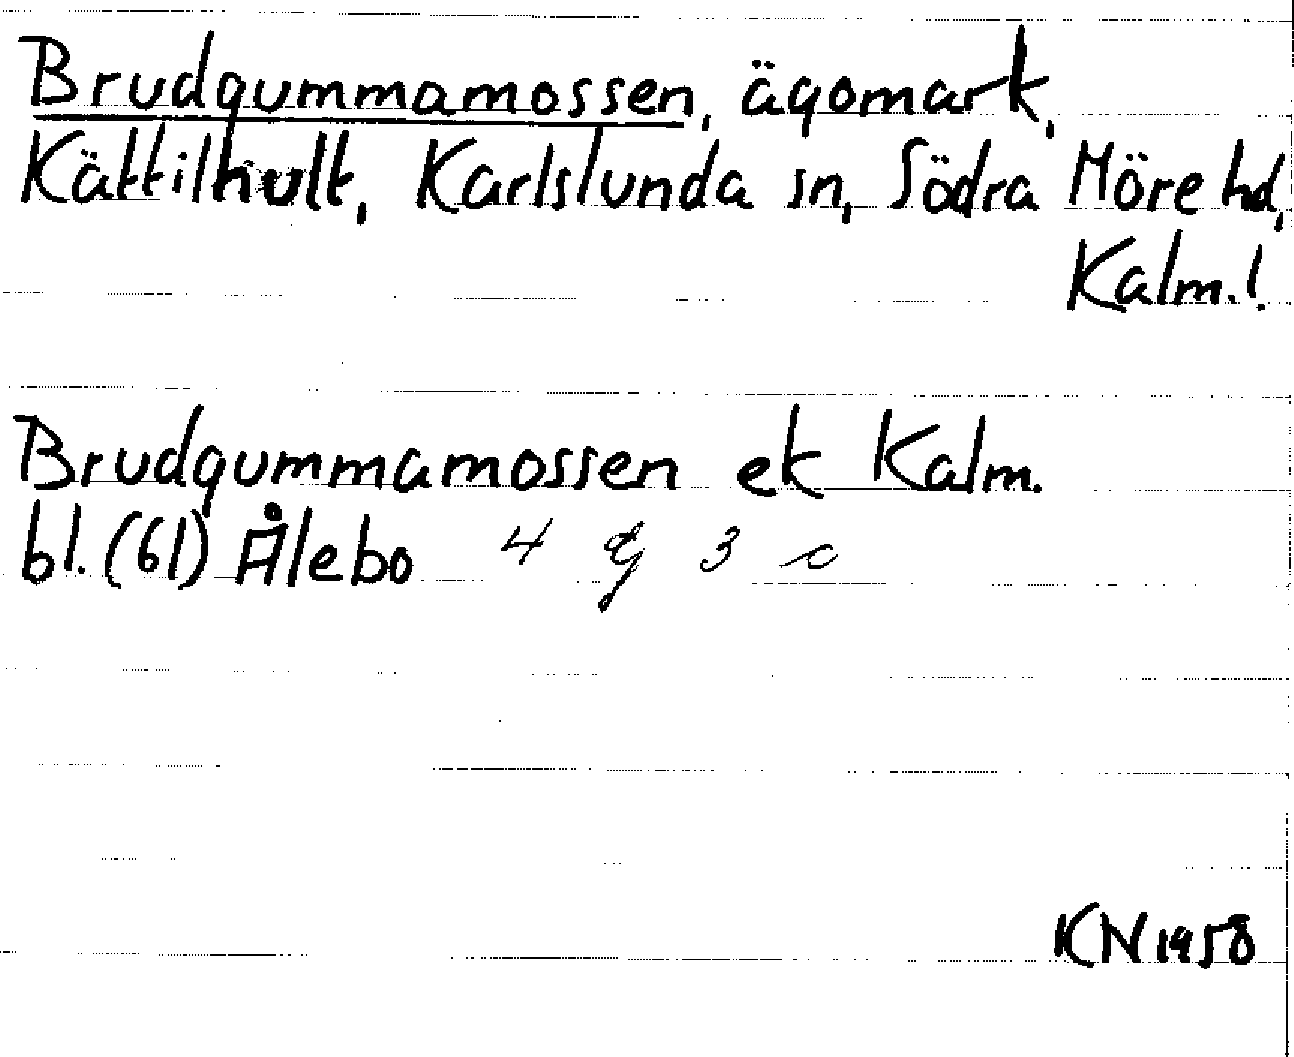 Brudgummamossen, ägomark,
Kättilhult, Karlslunda sn, Södra Möre hd,
Kalm.l.
Brudgummamossen ek Kalm.
bl. (61) Ålebo 4 g 3 c
KN 1958